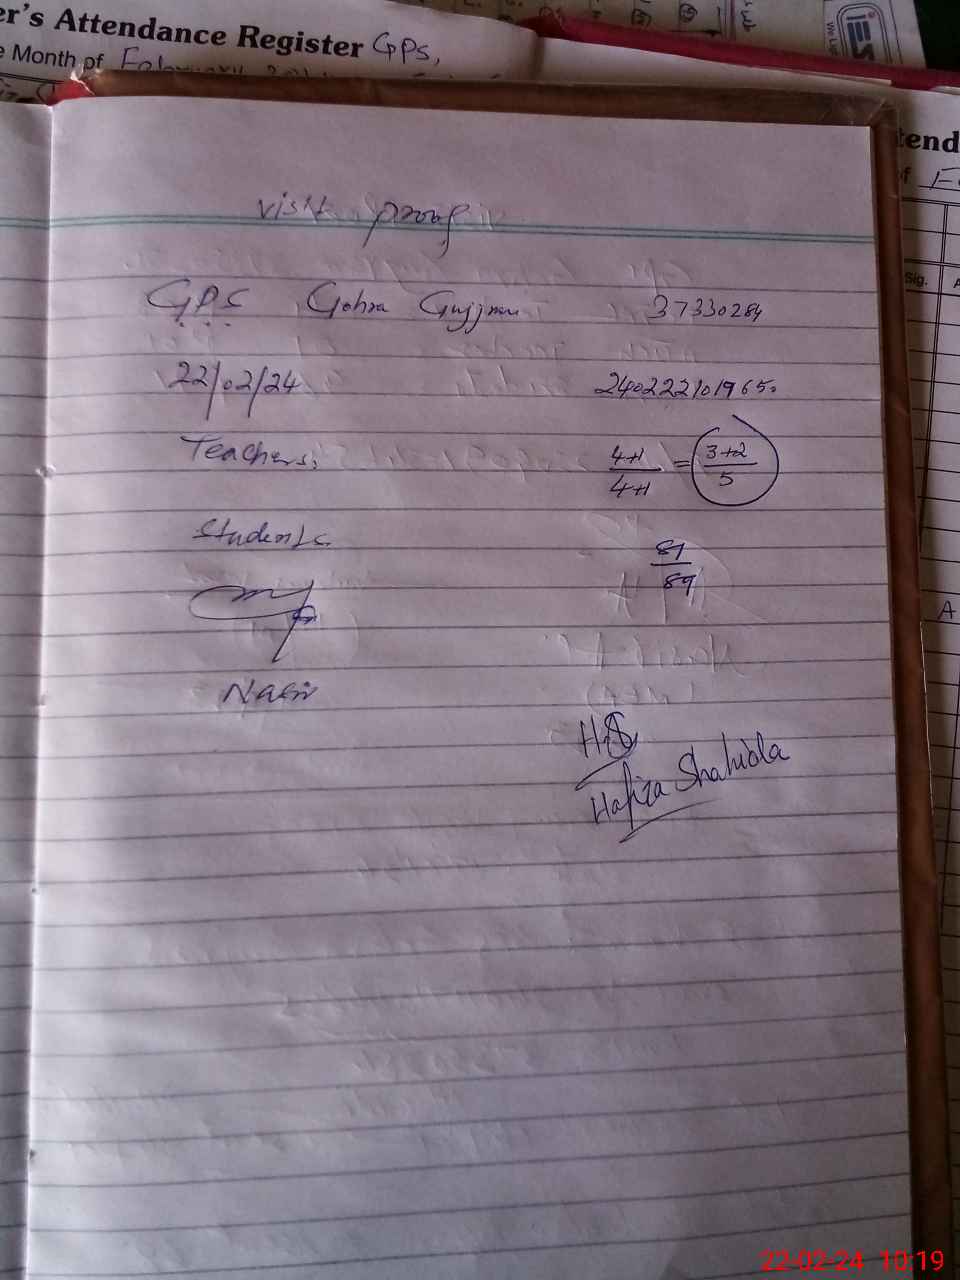 er's Attendance Register GPS,
e Month of February
IES
tend
of Fe
Sig.
A
visit proof
G.P.S Gohra Gujjran 37330284
22/02/24 240222101965.
Teachers, 4+1/4+1 = 3+2/5
Students. 81/89
Nasir
H.S
Hafiza Shahida
A
22-02-24 10:19